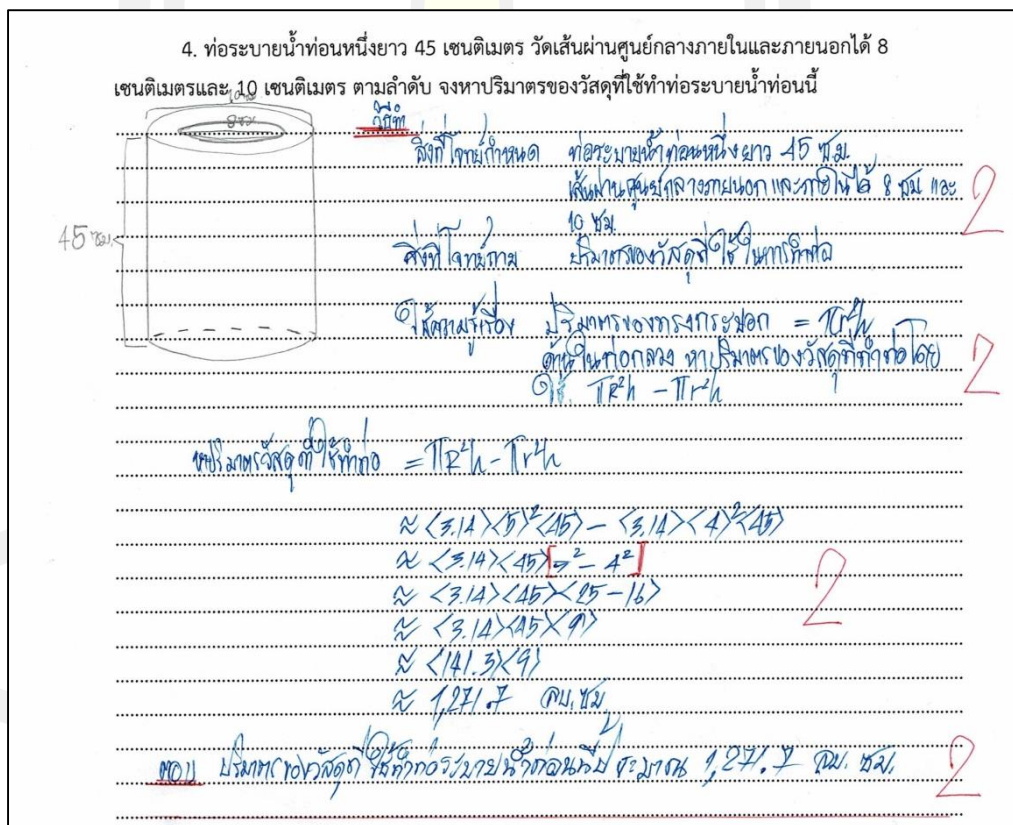 4. ท่อระบายน้ำท่อนหนึ่งยาว 45 เซนติเมตร วัดเส้นผ่านศูนย์กลางภายในและภายนอกได้ 8
เซนติเมตรและ 10 เซนติเมตร ตามลำดับ จงหาปริมาตรของวัสดุที่ใช้ทำท่อระบายน้ำท่อนนี้
10 ซม.
8 ซม.
45 ซม.
วิธีทำ
สิ่งที่โจทย์กำหนด ท่อระบายน้ำท่อนหนึ่งยาว 45 ซ.ม.
เส้นผ่านศูนย์กลางภายนอกและภายในได้ 8 ซม และ
10 ซม.
2
สิ่งที่โจทย์ถาม ปริมาตรของวัสดุที่ใช้ในการทำท่อ
ใช้ความรู้เรื่อง ปริมาตรของทรงกระบอก = πr²h
ด้านในท่อกลวง หาปริมาตรของวัสดุที่ทำท่อโดย
ใช้ πR²h - πr²h
2
หาปริมาตรวัสดุที่ใช้ทำท่อ = πR²h - πr²h
≈ (3.14)(5)²(45) - (3.14)(4)²(45)
≈ (3.14)(45)[5² - 4²]
≈ (3.14)(45)(25-16)
≈ (3.14)(45)(9)
≈ (141.3)(9)
≈ 1,271.7 ลบ.ซม.
2
ตอบ ปริมาตรของวัสดุที่ใช้ทำท่อระบายน้ำท่อนนี้ประมาณ 1,271.7 ลบ. ซม.
2